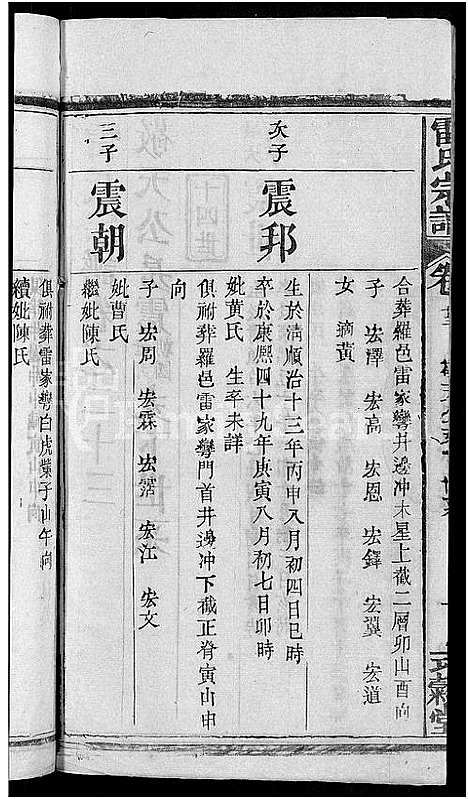 雷氏宗譜
卷
合葬羅邑雷家灣井邊冲木星上截二層卯山酉向
子 宏擇 宏高 宏恩 宏鐸 宏翼 宏道
女 適黃
次子
震邦
生於清順治十三年丙申八月初四日巳時
卒於康熙四十九年庚寅八月初七日卯時
妣黃氏 生卒未詳
俱祔葬羅邑雷家灣門首井邊冲下截正脊寅山申
向
子 宏周 宏霖 宏 宏江 宏文
三子
震朝
妣曹氏
繼妣陳氏
俱祔葬雷家灣白虎子山午向
續妣陳氏
十四世